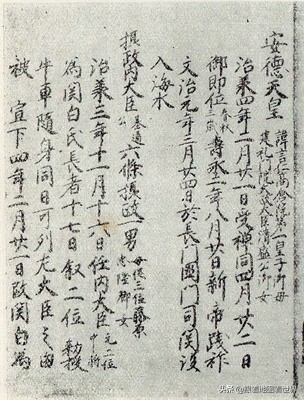 安德天皇 諱言仁高倉院第一皇子御母
建礼門院太政大臣清盛公御女
治承四年二月廿一日受禅同四月廿二日
御即位 春秋三歳 壽永二年八月廿日新帝践祚
文治元年三月廿四日於長門國門司関没
入海水
摂政内大臣 基通公 六條摂政一男 母従三位藤原忠隆卿女
治承三年十一月十六日任内大臣 元二位中将
為関白氏長者十七日叙二位勅授
牛車随身同日可列左大臣之由
被 宣下四年二月廿一日改関白為
头条 @跟着地图看世界